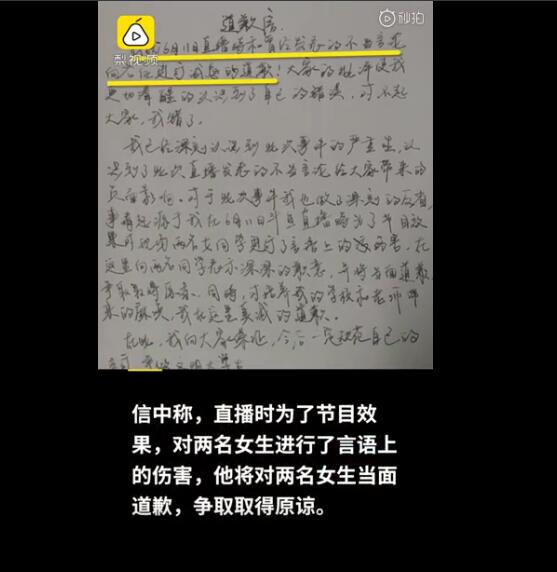 梨视频
秒拍
道歉信
6月11日直播时和首次发表的不当言论
向各位进行诚恳的道歉！大家的批评使我
更加清醒的认识到了自己的错误，对不起
大家，我错了。
我已经深刻认识到此次事件的严重性，认
识到了此次直播发表的不当言论给大家带来的
负面影响。对于此次事件我也做了深刻的反省，
事情起源于我在6月11日斗鱼直播时为了节目效
果对班内两名女同学进行了言语上的伤害，在
这里向两名同学表示深深的歉意，并将当面道歉
争取取得原谅。同时，对培养我的学校和老师带
来的麻烦，我在这里真诚的道歉。
在此，我向大家保证，今后一定规范自己的
信中称，直播时为了节目效
果，对两名女生进行了言语上
的伤害，他将对两名女生当面
道歉，争取取得原谅。